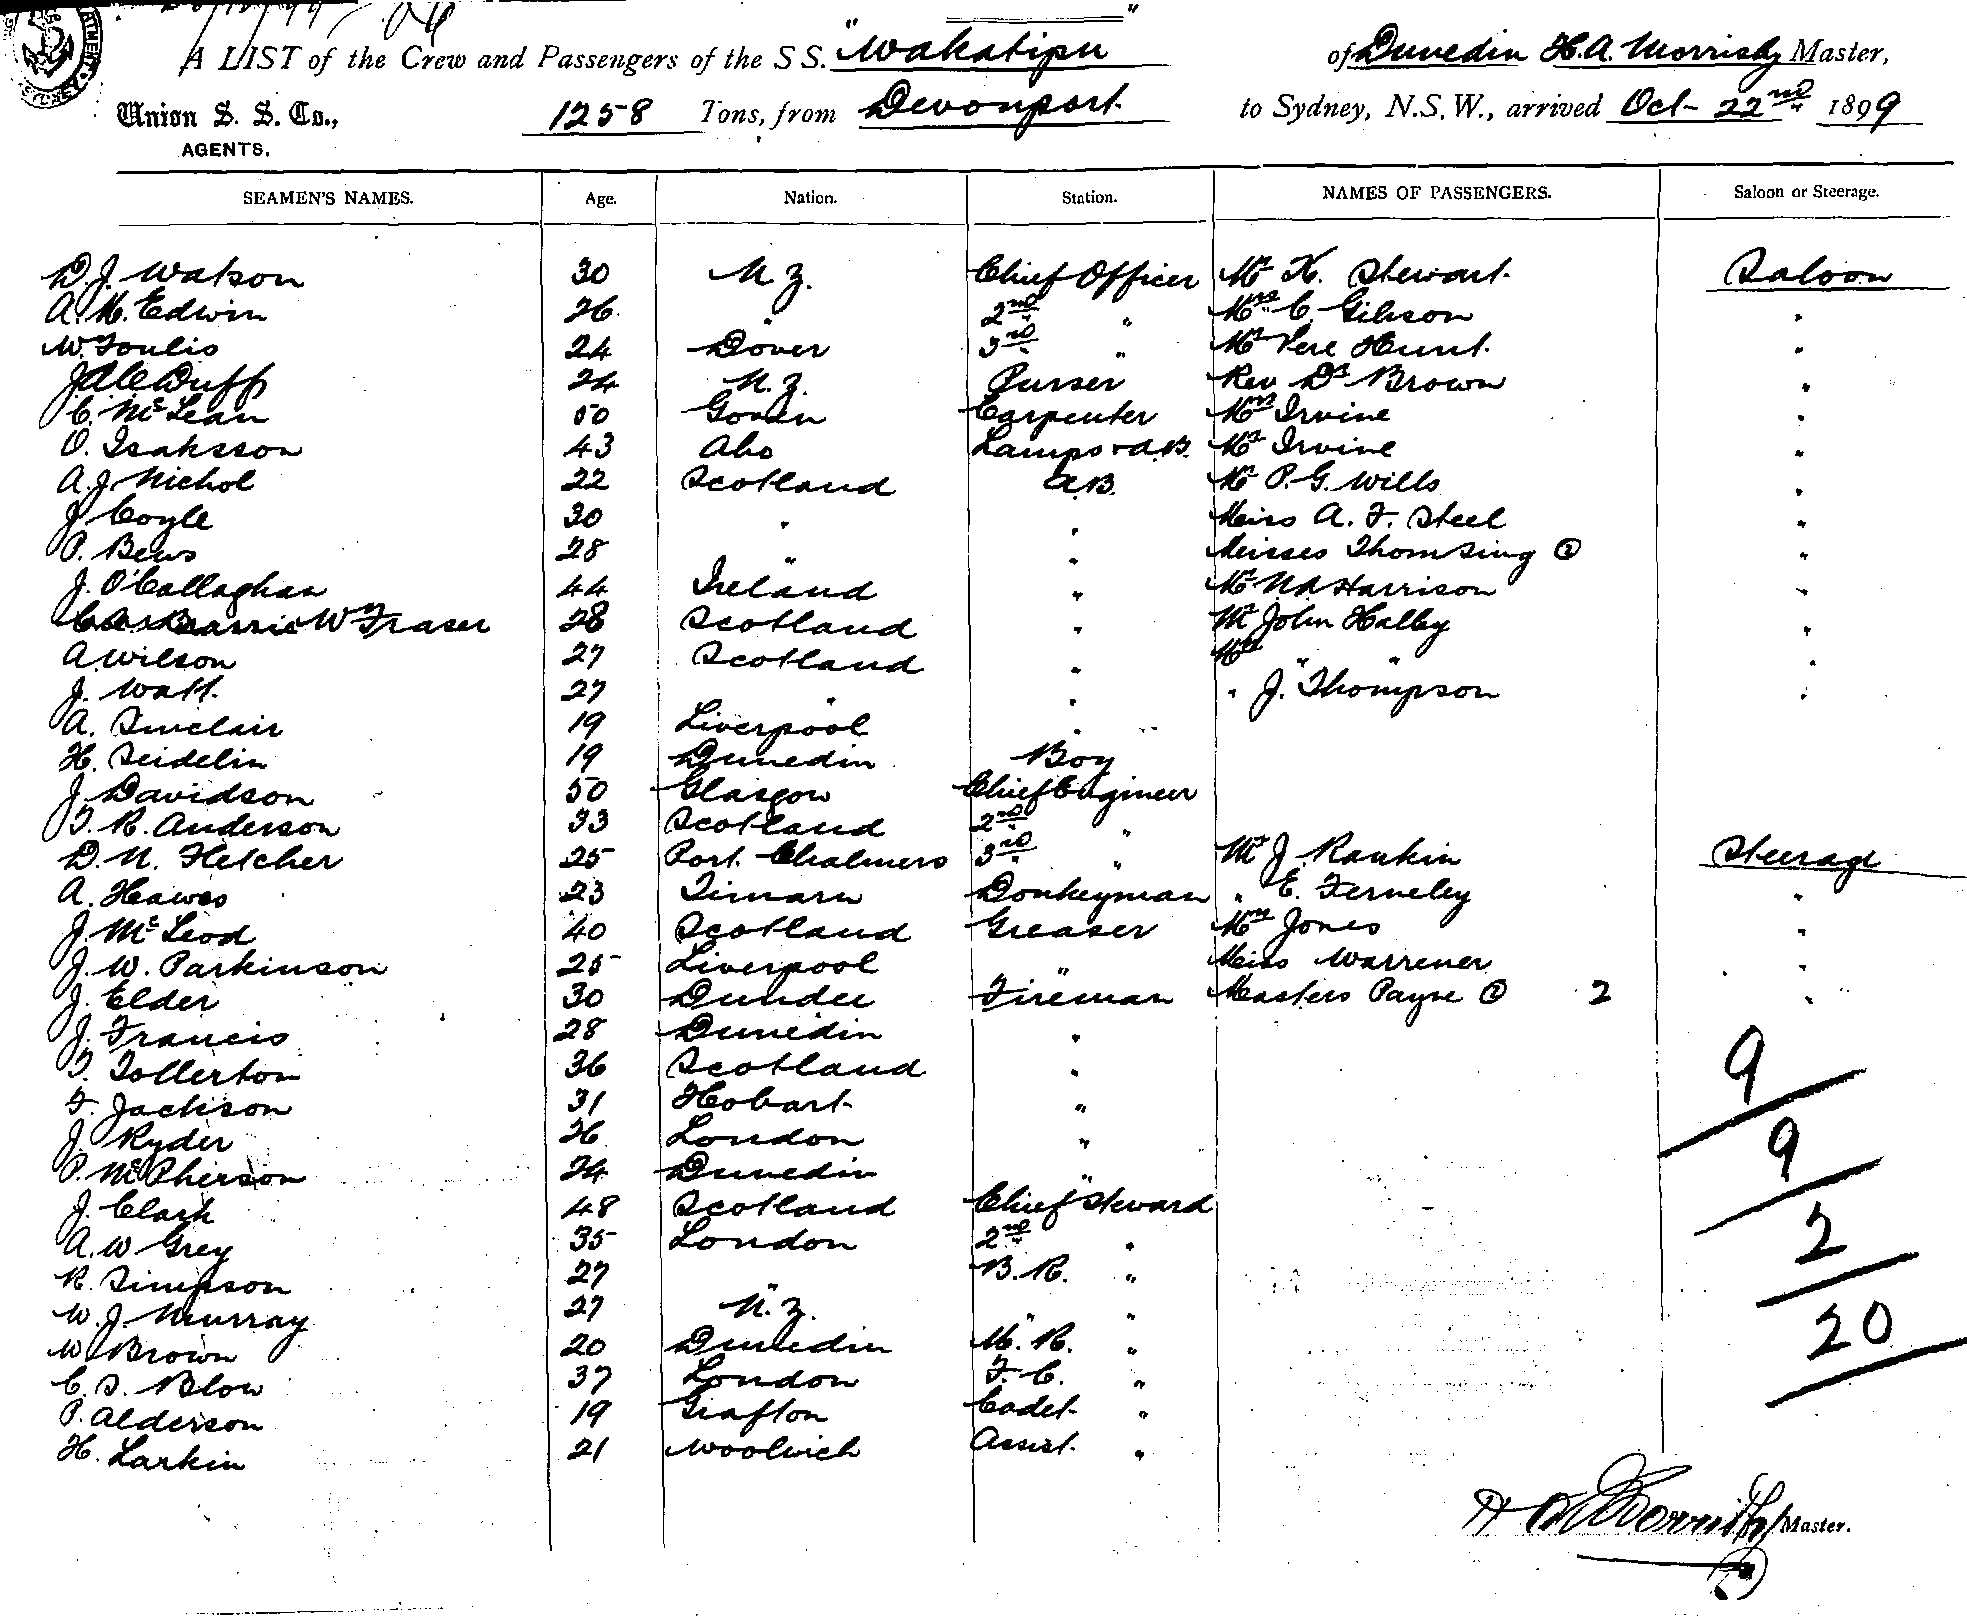 A LIST of the Crew and Passengers of the S S. "Wakatipu" of Dunedin H. A. Morrisby Master,
Union S. S. Co., AGENTS. 1258 Tons, from Devonport to Sydney, N.S.W., arrived Oct- 22nd 1899
SEAMEN'S NAMES. Age. Nation. Station. NAMES OF PASSENGERS. Saloon or Steerage.
D. J. Watson 30 N Z. Chief Officer Mr K. Stewart Saloon
A. M. Edwin 26 " 2nd " Mrs C. Gibson "
W. Foulis 24 Dover 3rd " Mr Vere Hunt "
Duff 24 N. Z. Purser Rev Dr Brown "
C. McLean 50 Govan Carpenter Mrs Irvine "
O. Isaksson 43 Abo Lamps & A.B. Mr Irvine "
A. J. Nichol 22 Scotland A.B. Mr P. G. Wills "
J. Coyle 30 " " Miss A. F. Steel "
P. Bews 28 " " Misses Thomsing ② "
J. O'Callaghan 44 Ireland " Mr Harrison "
W Fraser 28 Scotland " Mr John Halby "
A Wilson 27 Scotland " Mrs " " "
J. Watt. 27 " " " J. Thompson "
A. Sinclair 19 Liverpool "
H. Seidelin 19 Dunedin Boy
J. Davidson 50 Glasgow Chief Engineer
T. R. Anderson 33 Scotland 2nd "
D. N. Fletcher 25 Port Chalmers 3rd " Mr J. Rankin Steerage
A. Hawes 23 Timaru Donkeyman " E. Ferneley "
J. McLeod 40 Scotland Greaser Mrs Jones "
J. W. Parkinson 25 Liverpool " Miss Warrener "
J. Elder 30 Dundee Fireman Masters Payne ② 2 "
J. Francis 28 Dunedin "
T. Tollerton 36 Scotland " 9
F. Jackson 31 Hobart "
J. Ryder 26 London " 9
P. McPherson 24 Dunedin "
J. Clark 48 Scotland Chief Steward
A. W Grey 35 London 2nd " 2
R. Simpson 27 " B. R. "
W. J. Murray 27 N. Z. " "
W Brown 20 Dunedin M. R. " 20
C. S. Blow 37 London F. C. "
P. Alderson 19 Grafton Cadet "
H. Larkin 21 Woolwich Assist. "
H A Morrisby Master.